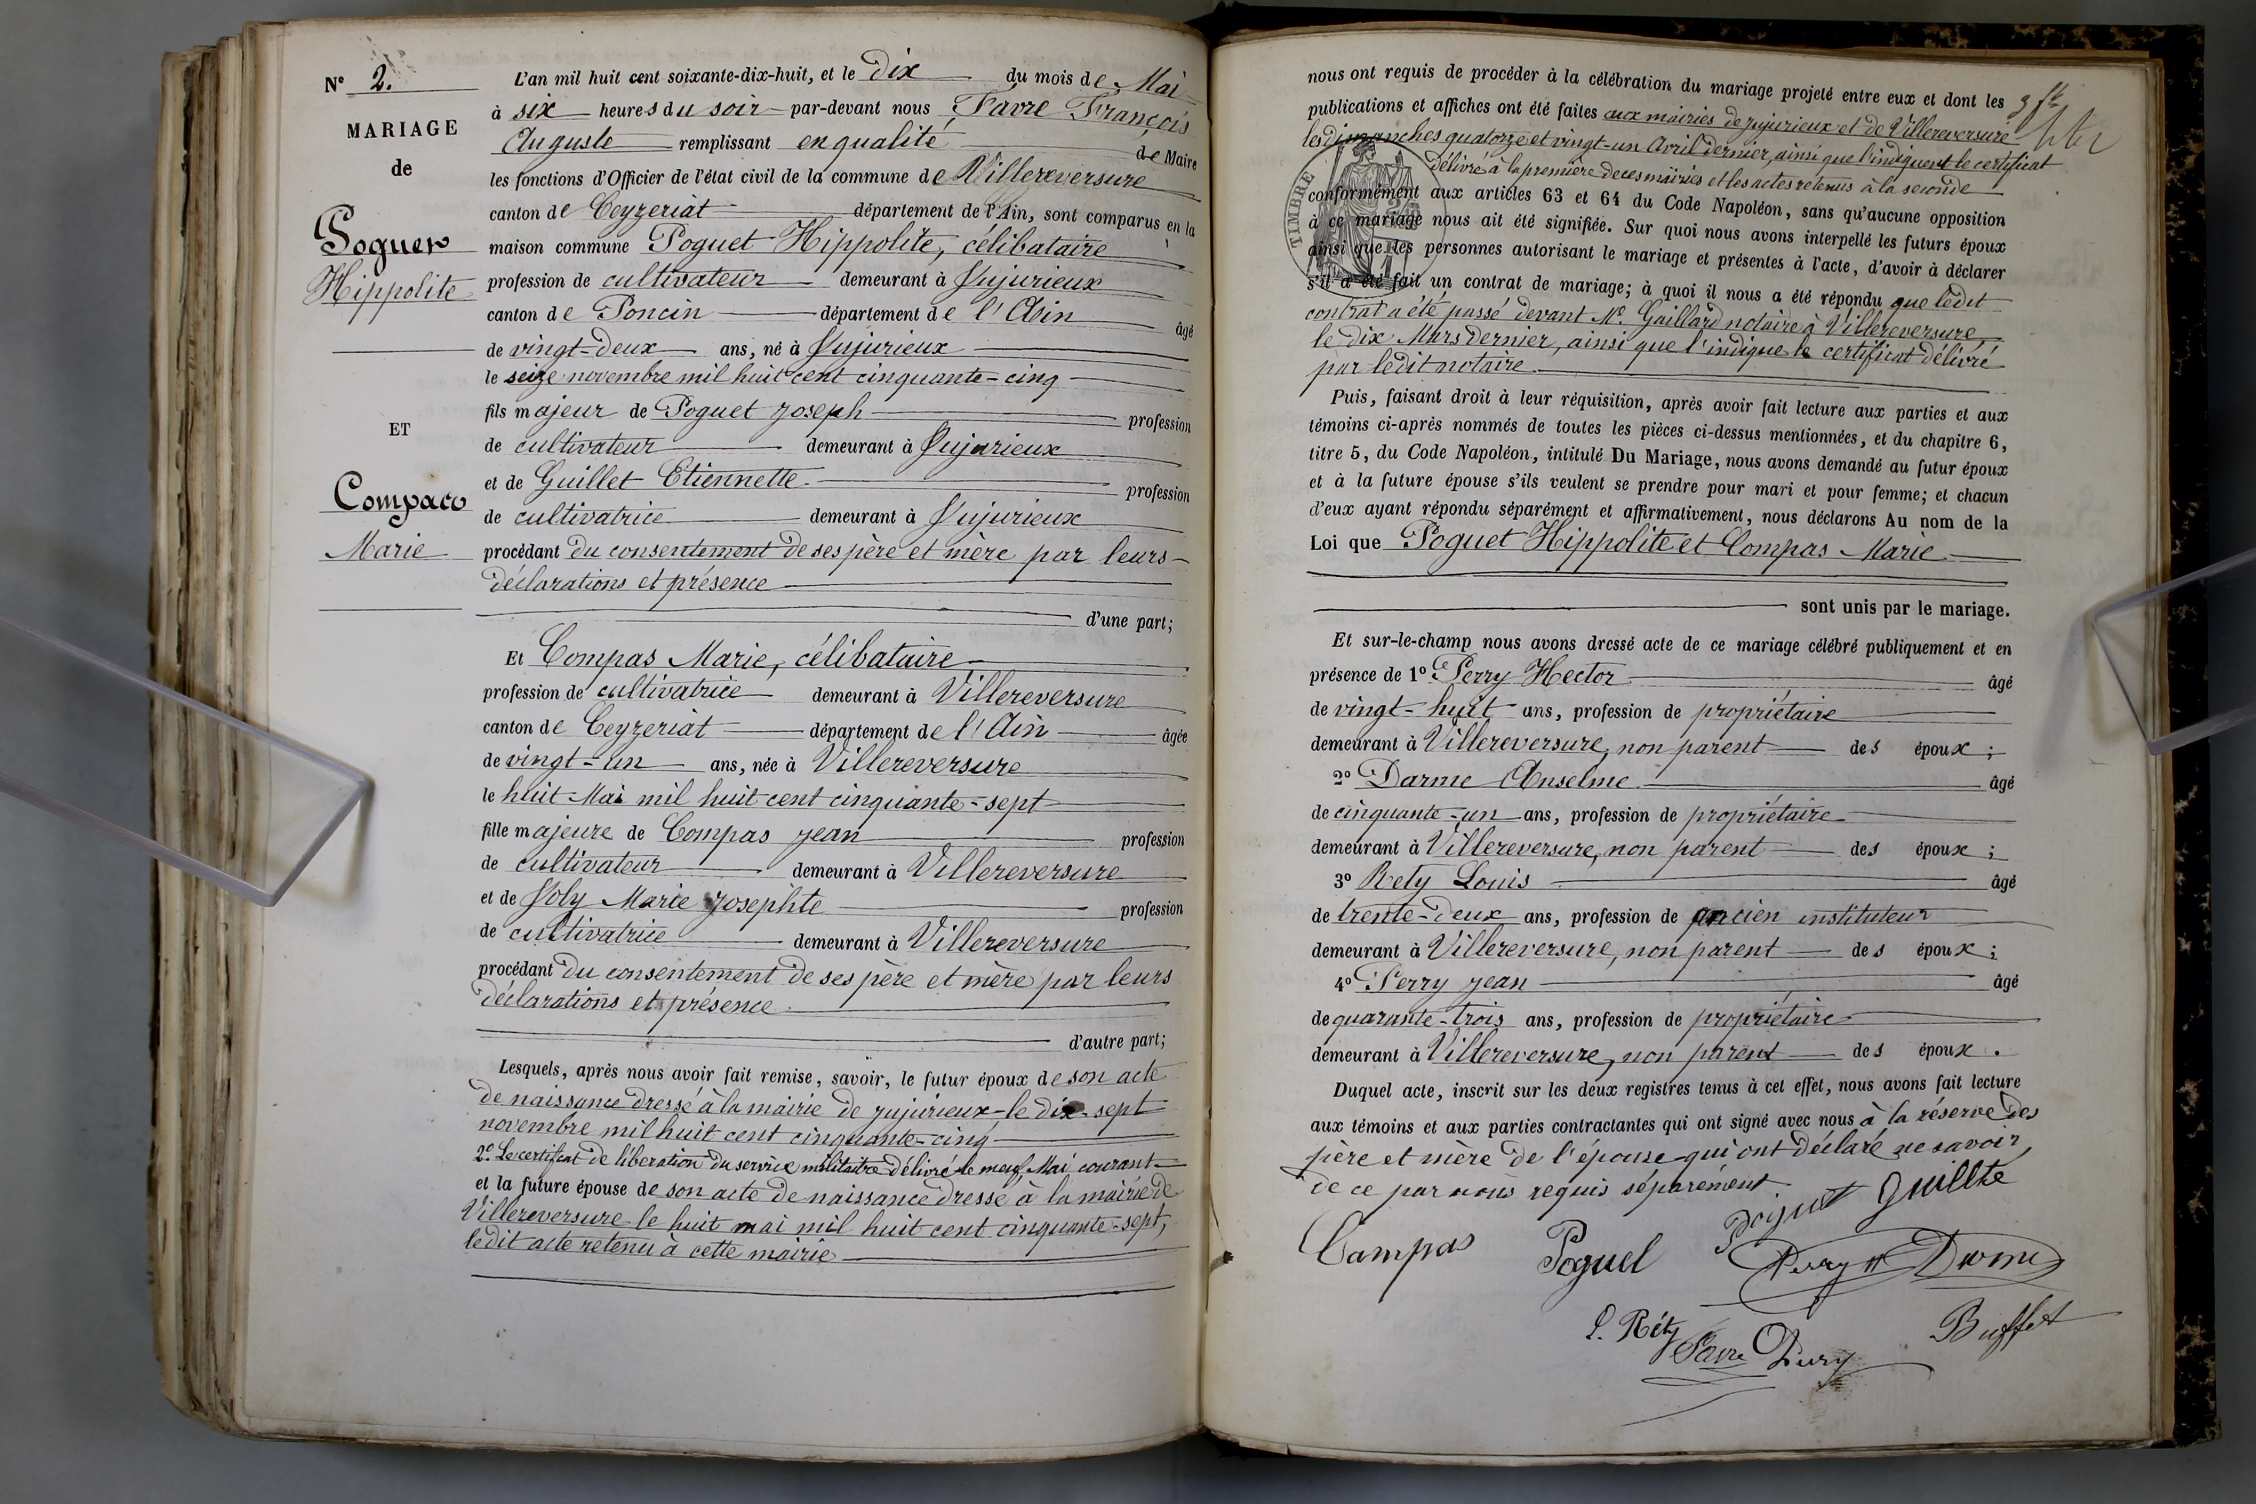 N° 2.
MARIAGE
de
Poguet
Hippolite
ET
Compas
Marie
L'an mil huit cent soixante-dix-huit, et le dix du mois de Mai
à six heures du soir par-devant nous Favre François
Auguste remplissant en qualité de Maire
les fonctions d'Officier de l'état civil de la commune de Villereversure
canton de Ceyzeriat département de l'Ain, sont comparus en la
maison commune Poguet Hippolite, célibataire
profession de cultivateur demeurant à Jujurieux
canton de Poncin département de l'Ain âgé
de vingt-deux ans, né à Jujurieux
le seize novembre mil huit cent cinquante-cinq
fils majeur de Poguet Joseph profession
de cultivateur demeurant à Jujurieux
et de Guillet Etiennette profession
de cultivatrice demeurant à Jujurieux
procédant du consentement de ses père et mère par leurs
déclarations et présence
d'une part;
Et Compas Marie, célibataire
profession de cultivatrice demeurant à Villereversure
canton de Ceyzeriat département de l'Ain âgée
de vingt-un ans, née à Villereversure
le huit Mai mil huit cent cinquante-sept
fille majeure de Compas Jean profession
de cultivateur demeurant à Villereversure
et de Joly Marie Josephte profession
de cultivatrice demeurant à Villereversure
procédant du consentement de ses père et mère par leurs
déclarations et présence
d'autre part;
Lesquels, après nous avoir fait remise, savoir, le futur époux de son acte
de naissance dressé à la mairie de Jujurieux le dix-sept
novembre mil huit cent cinquante-cinq
2° Le certificat de liberation du service militaire délivré le neuf Mai courant
et la future épouse de son acte de naissance dressé à la mairie de
Villereversure le huit mai mil huit cent cinquante-sept,
ledit acte retenu à cette mairie
nous ont requis de procéder à la célébration du mariage projeté entre eux et dont les
publications et affiches ont été faites aux mairies de Jujurieux et de Villereversure
les dimanches quatorze et vingt-un Avril dernier, ainsi que l'indiquent le certificat
délivré à la première de ces mairies et les actes retenus à la seconde
TIMBRE
conformément aux articles 63 et 64 du Code Napoléon, sans qu'aucune opposition
à ce mariage nous ait été signifiée. Sur quoi nous avons interpellé les futurs époux
ainsi que les personnes autorisant le mariage et présentes à l'acte, d'avoir à déclarer
s'il a été fait un contrat de mariage; à quoi il nous a été répondu que ledit
contrat a été passé devant Me. Gaillard notaire à Villereversure
le dix Mars dernier, ainsi que l'indique le certificat délivré
par ledit notaire
Puis, faisant droit à leur réquisition, après avoir fait lecture aux parties et aux
témoins ci-après nommés de toutes les pièces ci-dessus mentionnées, et du chapitre 6,
titre 5, du Code Napoléon, intitulé Du Mariage, nous avons demandé au futur époux
et à la future épouse s'ils veulent se prendre pour mari et pour femme; et chacun
d'eux ayant répondu séparément et affirmativement, nous déclarons Au nom de la
Loi que Poguet Hippolite et Compas Marie
sont unis par le mariage.
Et sur-le-champ nous avons dressé acte de ce mariage célébré publiquement et en
présence de 1° Perry Hector âgé
de vingt-huit ans, profession de propriétaire
demeurant à Villereversure, non parent des époux;
2° Darme Anselme âgé
de cinquante-un ans, profession de propriétaire
demeurant à Villereversure, non parent des époux;
3° Rety Louis âgé
de trente-deux ans, profession de ancien instituteur
demeurant à Villereversure, non parent des époux;
4° Perry Jean âgé
de quarante-trois ans, profession de propriétaire
demeurant à Villereversure, non parent des époux.
Duquel acte, inscrit sur les deux registres tenus à cet effet, nous avons fait lecture
aux témoins et aux parties contractantes qui ont signé avec nous à la réserve des
père et mère de l'épouse qui ont déclaré ne savoir,
de ce par nous requis séparément
Poguet Guillte
Compas Poguel Perry H Darme
L. Réty Favre Perry Buffet